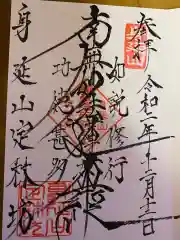 奉拝
令和二年十二月十二日
如説修行
南無妙法蓮華経
功徳甚多
身延山定林坊